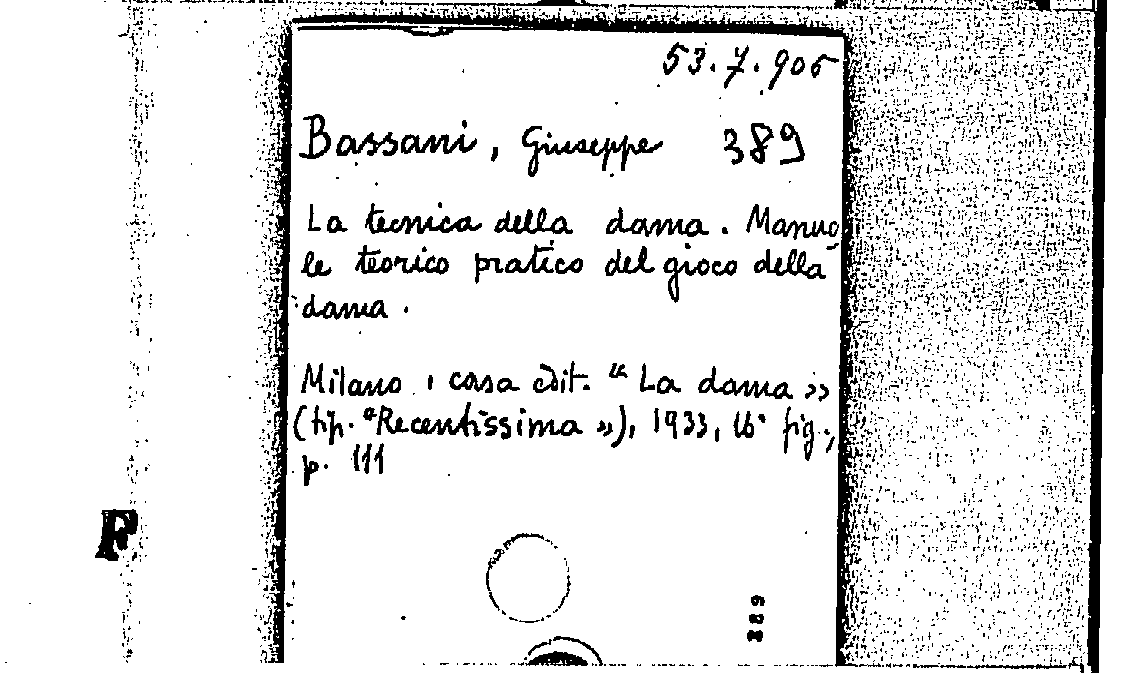 53.7.905
Bassani, Giuseppe 389
La tecnica della dama. Manua
le teorico pratico del gioco della
dama.
Milano, casa edit. “La dama»
(tip. “Recentissima»), 1933, 16° fig.,
p. 111
F
389